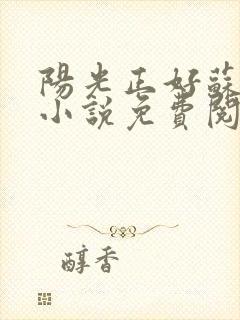 陽光正好蘇
小說免費閱
醇香